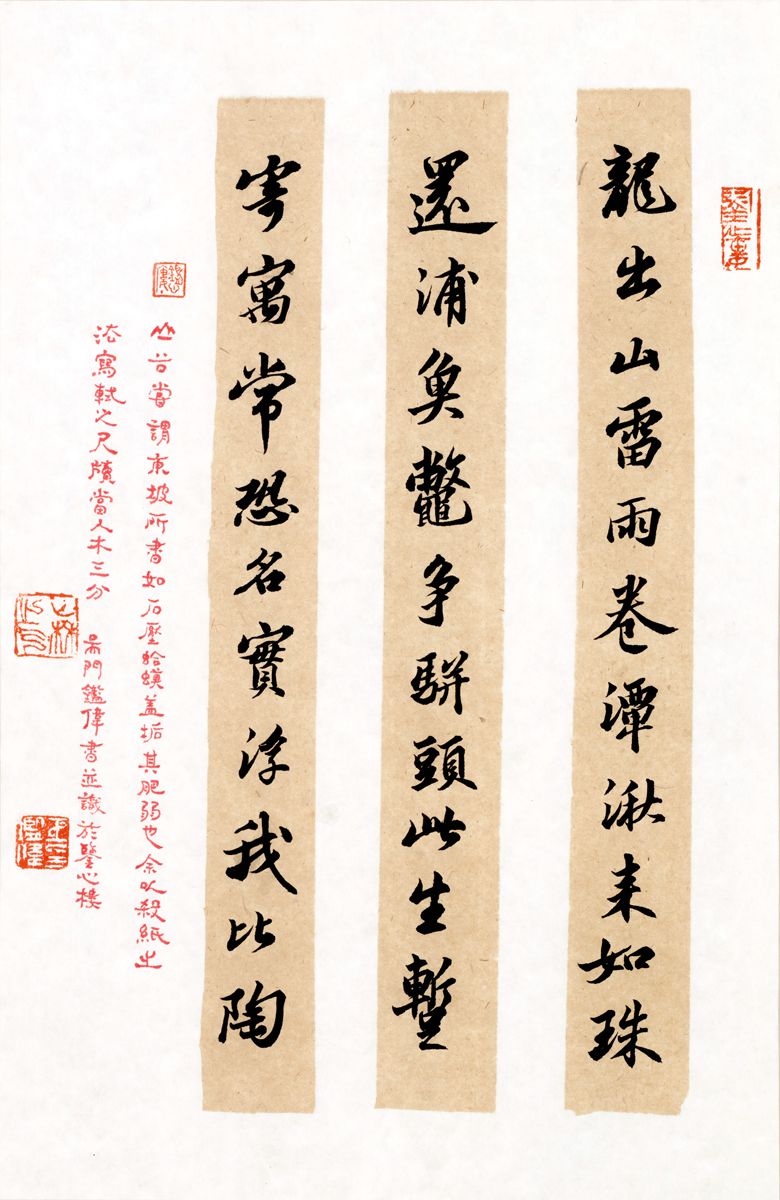 龍出山雷雨卷潭湫来如珠
還浦魚鼈争駢頭此生蹔
寄寓常恐名實浮我比陶
山谷嘗謂東坡所書如石壓蛤蟆盖垢其肥弱也余以殺紙之
法寫軾之尺牘當入木三分 吴門鑑偉書並識於鑒心樓